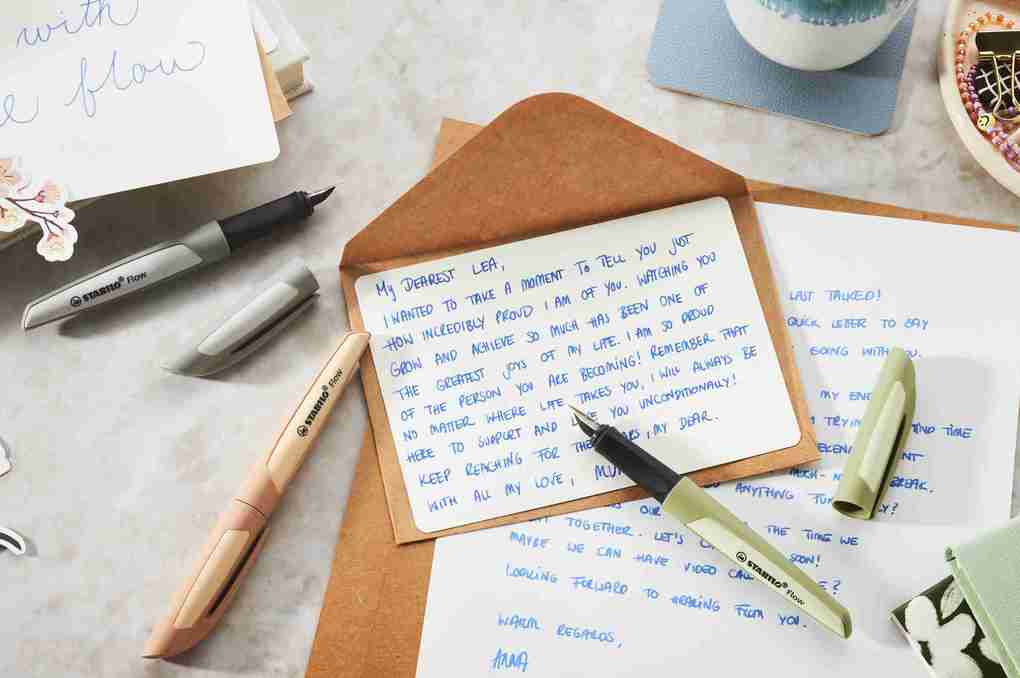 with
flow
STABILO® Flow
STABILO® Flow
STABILO® Flow
MY DEAREST LEA,
I WANTED TO TAKE A MOMENT TO TELL YOU JUST
HOW INCREDIBLY PROUD I AM OF YOU. WATCHING YOU
GROW AND ACHIEVE SO MUCH HAS BEEN ONE OF
THE GREATEST JOYS OF MY LIFE. I AM SO PROUD
OF THE PERSON YOU ARE BECOMING! REMEMBER THAT
NO MATTER WHERE LIFE TAKES YOU, I WILL ALWAYS BE
HERE TO SUPPORT AND YOU UNCONDITIONALLY!
KEEP REACHING FOR MY DEAR.
WITH ALL MY LOVE,
LAST TALKED!
QUICK LETTER TO SAY
GOING WITH YOU.
MY
TIME
ANYTHING
OUR THE TIME WE
TOGETHER. LET'S SOON!
MAYBE WE CAN HAVE VIDEO
LOOKING FORWARD TO HEARING FROM YOU.
WARM REGARDS,
ANNA